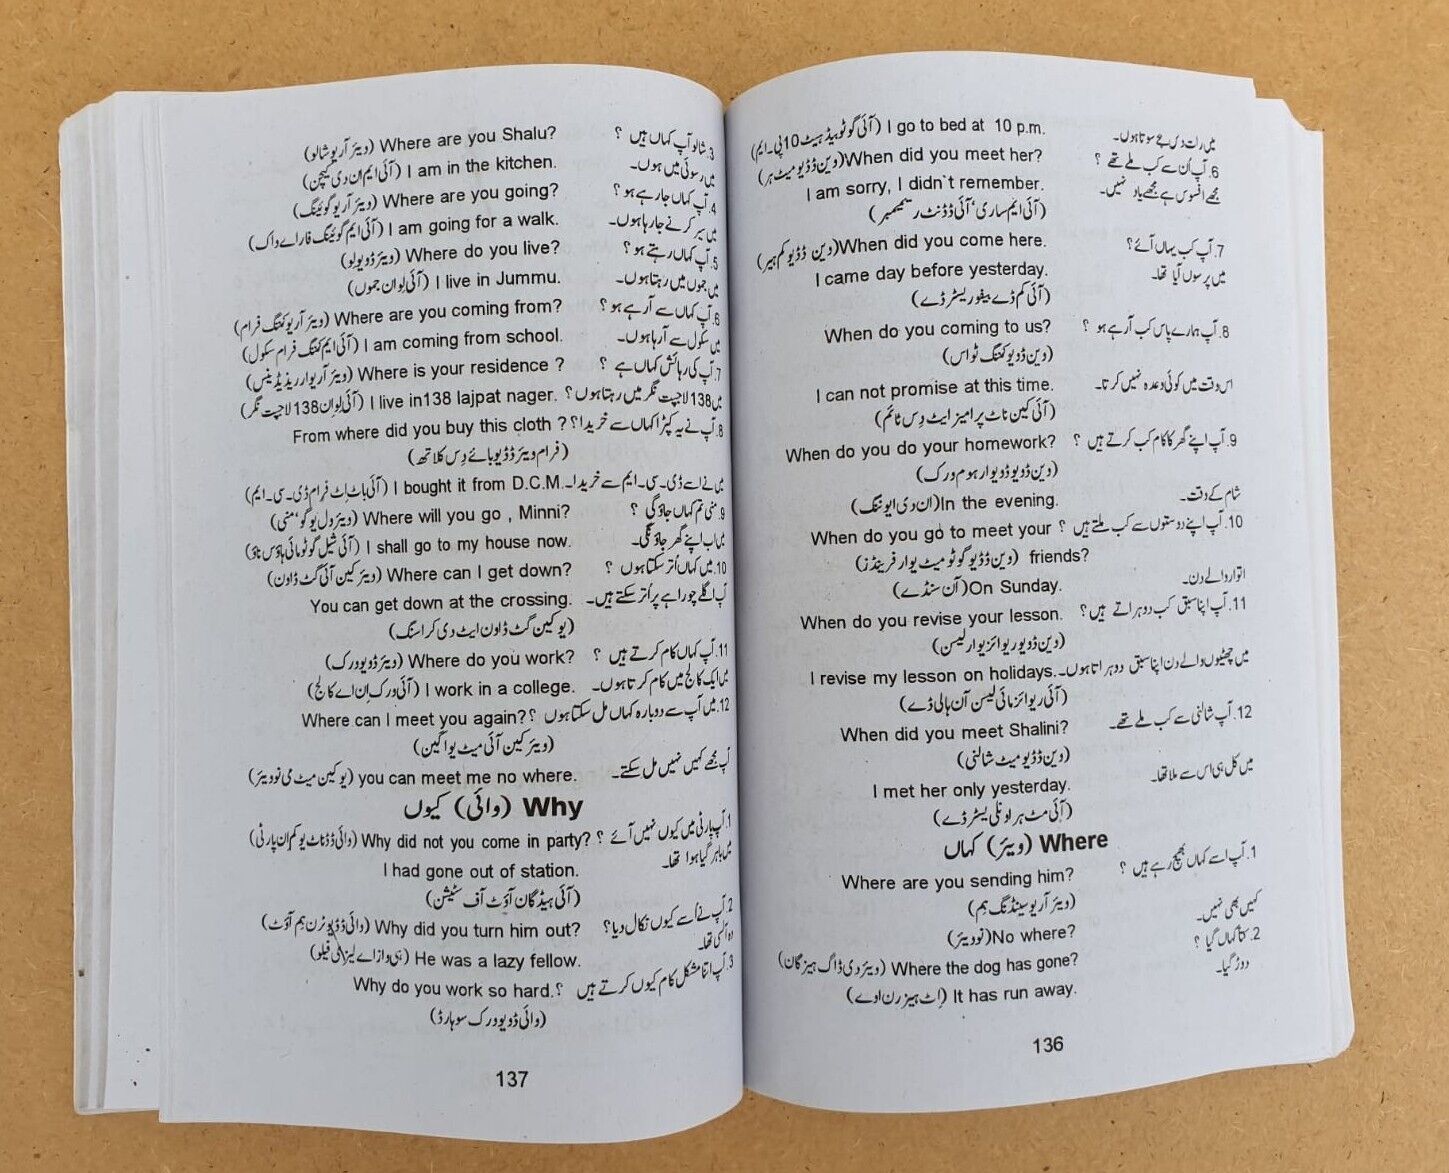 میں رات دس بجے سوتا ہوں۔ I go to bed at 10 p.m. (آئی گو ٹو بیڈ ایٹ 10 پی۔ایم)
6. آپ اُن سے کب ملے تھے ؟ When did you meet her? (وین ڈڈ یو میٹ ہر)
مجھے افسوس ہے مجھے یاد نہیں۔ I am sorry, I didn`t remember.
(آئی ایم ساری‘ آئی ڈڈنٹ ریممبر)
7. آپ کب یہاں آئے؟ When did you come here. (وین ڈڈ یو کم ہیر)
میں پرسوں آیا تھا۔ I came day before yesterday.
(آئی کم ڈے بیفور یسٹر ڈے)
8. آپ ہمارے پاس کب آ رہے ہو ؟ When do you coming to us?
(وین ڈو یو کمنگ ٹو اس)
اس وقت میں کوئی وعدہ نہیں کرتا۔ I can not promise at this time.
(آئی کین ناٹ پرامیز ایٹ دِس ٹائم)
9. آپ اپنے گھر کا کام کب کرتے ہیں ؟ When do you do your homework?
(وین ڈو یو ڈو یوار ہوم ورک)
شام کے وقت۔ In the evening. (ان دی ایوننگ)
10. آپ اپنے دوستوں سے کب ملتے ہیں ؟ When do you go to meet your
friends? (وین ڈڈ یو گو ٹو میٹ یوار فرینڈز)
اتوار والے دن۔ On Sunday. (آن سنڈے)
11. آپ اپنا سبق کب دوہراتے ہیں ؟ When do you revise your lesson.
(وین ڈو یو ریوائز یوار لیسن)
میں چھٹیوں والے دن اپنا سبق دوہراتا ہوں۔ I revise my lesson on holidays.
(آئی ریوائز مائی لیسن آن ہالی ڈے)
12. آپ شالنی سے کب ملے تھے۔ When did you meet Shalini?
(وین ڈڈ یو میٹ شالنی)
میں کل ہی اس سے ملا تھا۔ I met her only yesterday.
(آئی مٹ ہر اونلی یسٹر ڈے)
Where (ویئر) کہاں
1. آپ اسے کہاں بھیج رہے ہیں ؟ Where are you sending him?
(ویئر آر یو سینڈنگ ہم)
کہیں بھی نہیں۔ No where? (نو ویئر)
2. کتا کہاں گیا ؟ Where the dog has gone? (ویئر دی ڈاگ ہیز گان)
دوڑ گیا۔ It has run away. (اِٹ ہیز رن اوے)
136
3. شالو آپ کہاں ہیں ؟ Where are you Shalu? (ویئر آر یو شالو)
میں رسوئی میں ہوں۔ I am in the kitchen. (آئی ایم ان دی کیچن)
4. آپ کہاں جا رہے ہو ؟ Where are you going? (ویئر آر یو گوئینگ)
میں سیر کرنے جا رہا ہوں۔ I am going for a walk. (آئی ایم گوئینگ فار اے واک)
5. آپ کہاں رہتے ہو ؟ Where do you live? (ویئر ڈو یو لو)
میں جموں میں رہتا ہوں۔ I live in Jummu. (آئی لِو ان جموں)
6. آپ کہاں سے آ رہے ہو ؟ Where are you coming from? (ویئر آر یو کمنگ فرام)
میں سکول سے آ رہا ہوں۔ I am coming from school. (آئی ایم کمنگ فرام سکول)
7. آپ کی رہائش کہاں ہے ؟ Where is your residence ? (ویئر آر یوار ریذیڈینس)
میں 138 لاجپت نگر میں رہتا ہوں ؟ I live in138 lajpat nager. (آئی لِو اِن 138 لاجپت نگر)
8. آپ نے یہ کپڑا کہاں سے خریدا؟ From where did you buy this cloth ?
(فرام ویئر ڈڈ یو بائے دِس کلاتھ)
میں نے اسے ڈی۔سی۔ایم سے خریدا۔ I bought it from D.C.M. (آئی باٹ اِٹ فرام ڈی۔سی۔ایم)
9. منی تم کہاں جاؤ گی ؟ Where will you go , Minni? (ویئر وِل یو گو‘ منی)
میں اب اپنے گھر جاؤنگی۔ I shall go to my house now. (آئی شیل گو ٹو مائی ہاؤس ناؤ)
10. میں کہاں اُتر سکتا ہوں ؟ Where can I get down? (ویئر کین آئی گٹ ڈاون)
آپ اگلے چوراہے پر اُتر سکتے ہیں۔ You can get down at the crossing.
(یو کین گٹ ڈاون ایٹ دی کراسنگ)
11. آپ کہاں کام کرتے ہیں ؟ Where do you work? (ویئر ڈو یو ورک)
میں ایک کالج میں کام کرتا ہوں۔ I work in a college. (آئی ورک اِن اے کالج)
12. میں آپ سے دوبارہ کہاں مل سکتا ہوں ؟ Where can I meet you again?
(ویئر کین آئی میٹ یو اگین)
آپ مجھے کہیں نہیں مل سکتے۔ you can meet me no where. (یو کین میٹ می نو ویئر)
Why (وائی) کیوں
1. آپ پارٹی میں کیوں نہیں آئے ؟ Why did not you come in party? (وائی ڈڈ ناٹ یو کم اِن پارٹی)
میں باہر گیا ہوا تھا۔ I had gone out of station.
(آئی ہیڈ گان آؤٹ آف سٹیشن)
2. آپ نے اُسے کیوں نکال دیا؟ Why did you turn him out? (وائی ڈڈ یو ٹرن ہِم آؤٹ)
وہ آلسی تھا۔ He was a lazy fellow. (ہی واز اے لیزائی فیلو)
3. آپ اتنا مشکل کام کیوں کرتے ہیں ؟ Why do you work so hard.
(وائی ڈو یو ورک سو ہارڈ)
137